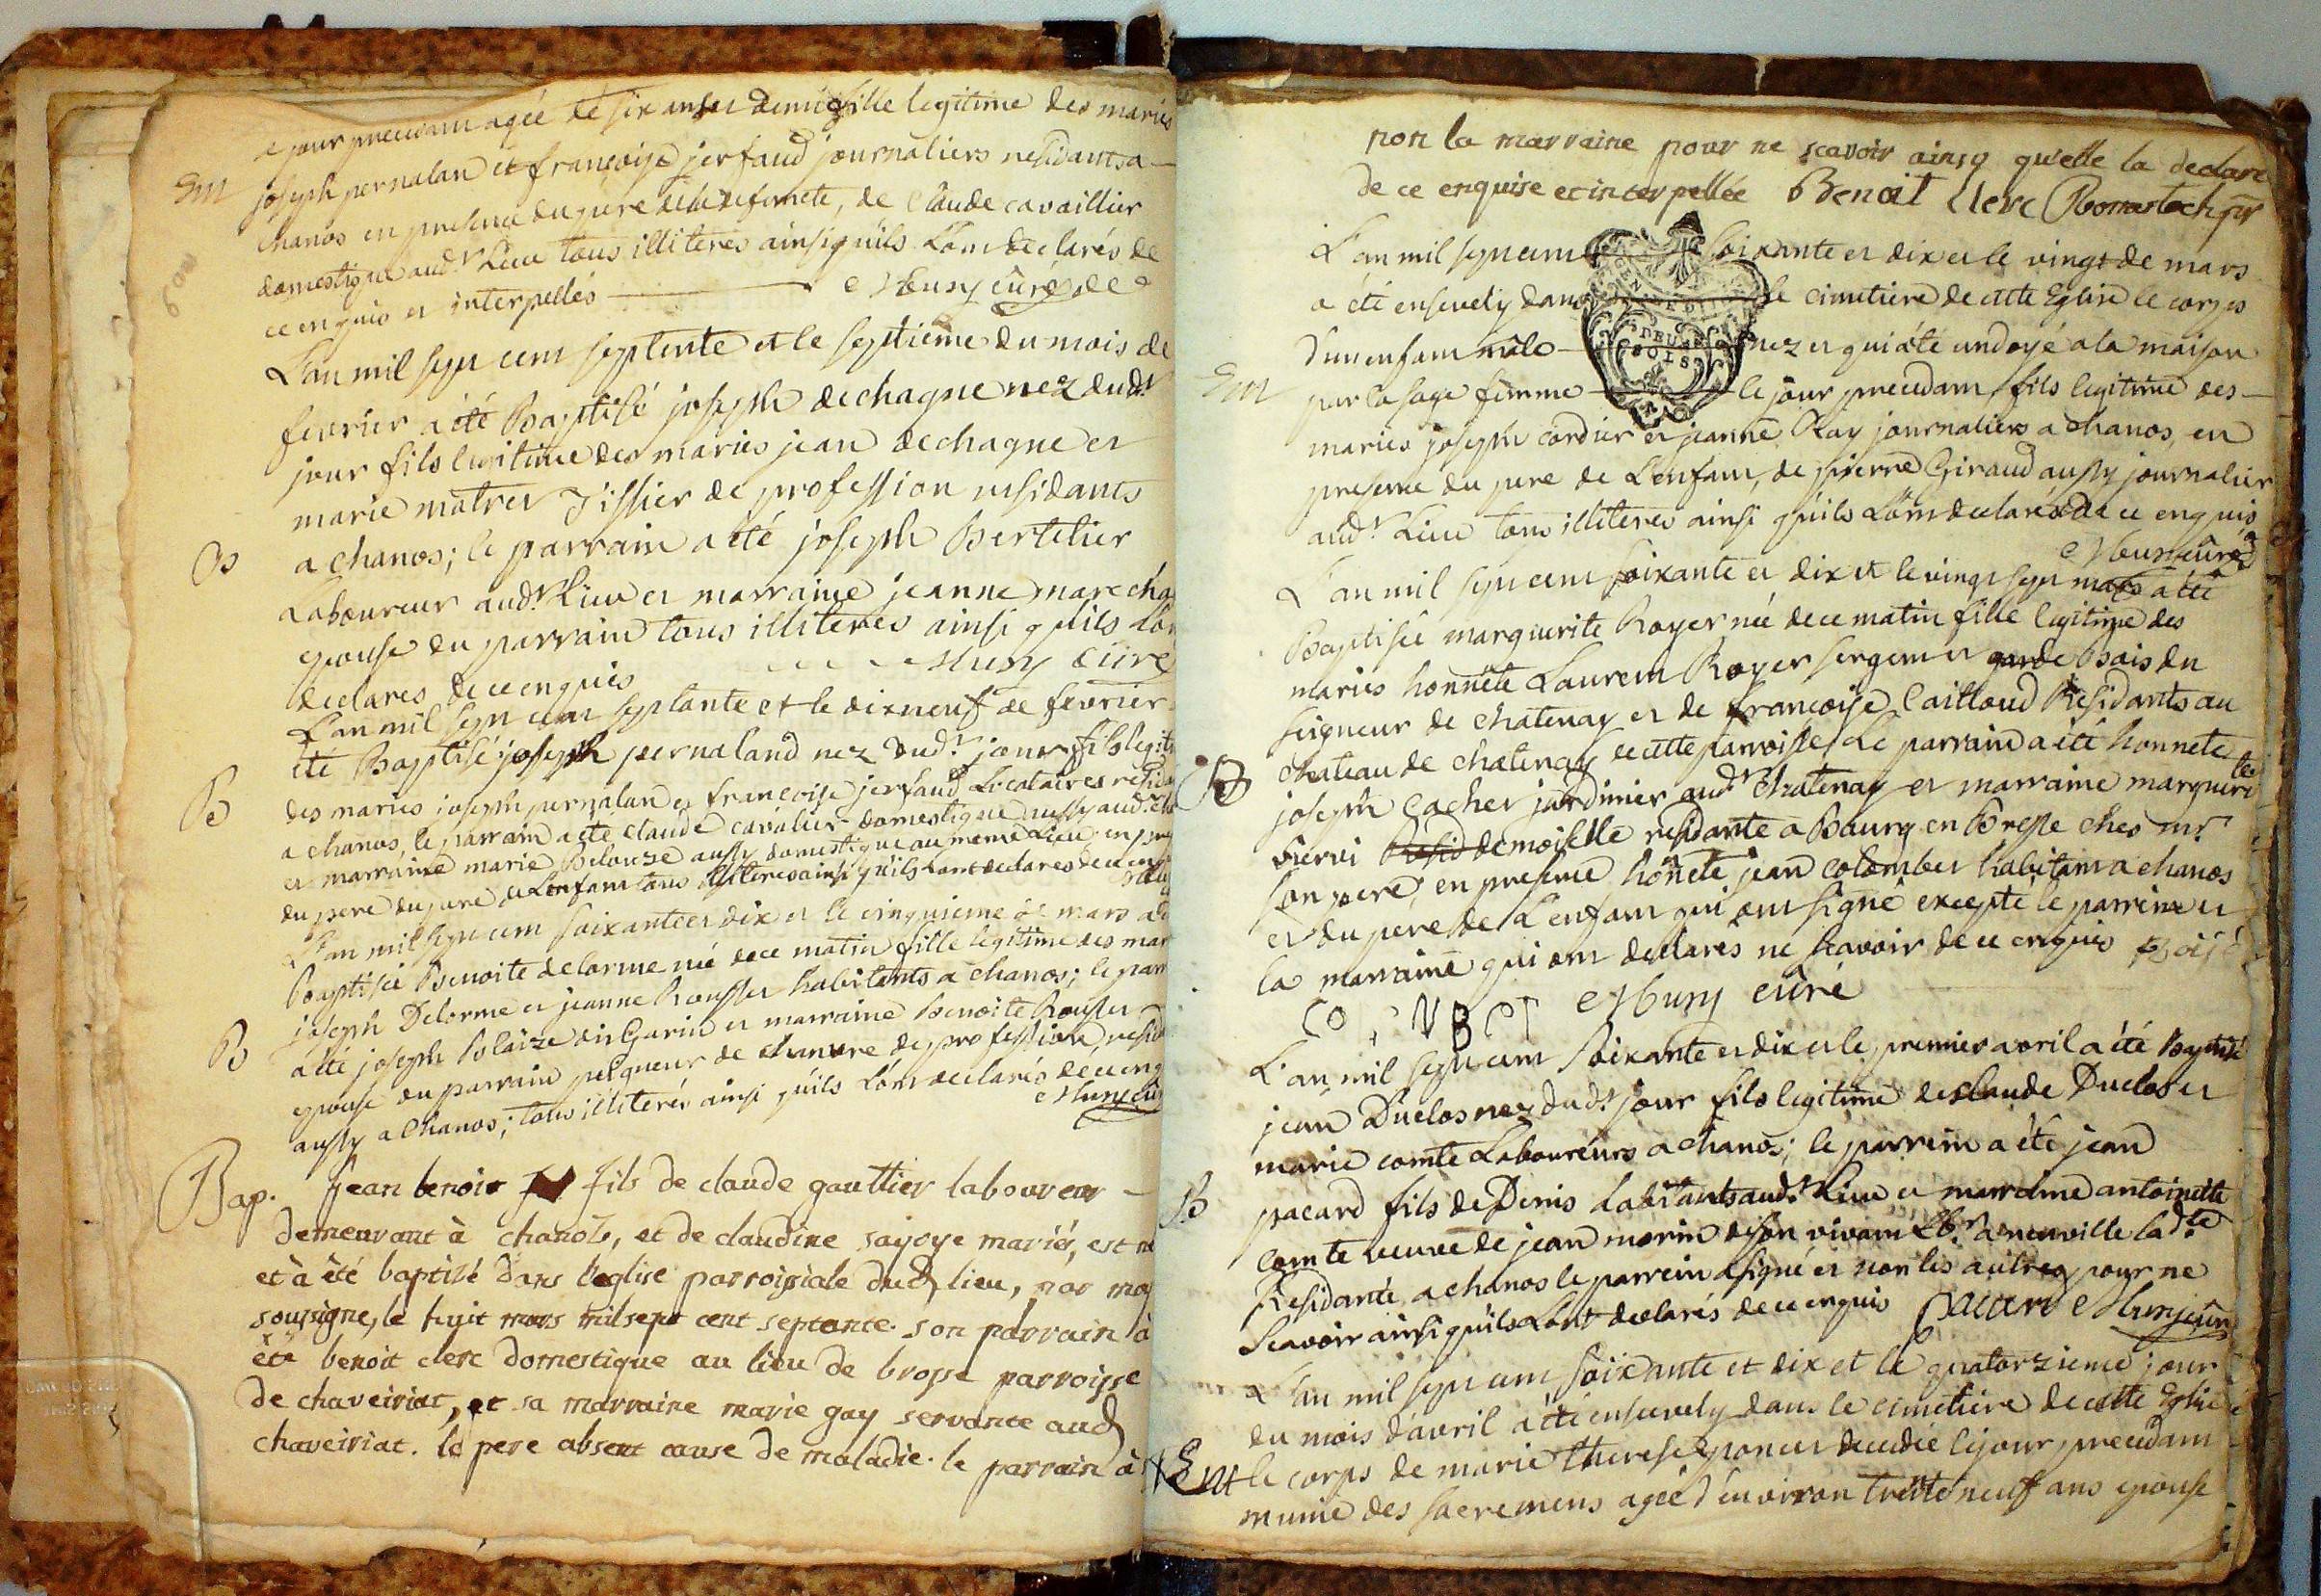 le jour precedam agée de six ans et demi fille legitime des mariés
Em
joseph pernalan et francoise jerfaud journaliers residants a
chanos en presence du pere de la defuncte, de Claude cavaillier
domestique aud.t Lieu tous illiteres ainsi quils Lont declarés de
ce enquis et interpellés Muny curé
L'an mil sept cent septente et le septieme du mois de
fevrier a été Baptisé joseph dechagne nez dud.t
jour fils legitime des mariés jean dechagne et
marie matret Tissier de profession residants
B
a chanos; le parrain a été joseph Bertelier
Laboureur aud.t Lieu et marraine jeanne marecha
epouse du parrain tous illiteres ainsi quils Lon
declares de ce enquis Muny Curé
L'an mil sept cent septante et le dixneuf de fevrier
été Baptisé joseph pernaland nez dud.t jour fils legit
B
des mariés joseph pernalan et francoise jerfaud Locataires resida
a chanos, le parrain a été claude cavalier domestique aussy aud.t
et marraine marie Belouze aussy domestique au meme Lieu en pre
du pere du pere de Lenfant tous illiteres ainsi quils Lont declares de ce enq
L'an mil sept cent soixante et dix et le cinquieme de mars a é
Baptisée Benoite delorme née de ce matin fille legitime des mar
joseph Delorme et jeanne Rousset habitants a chanos; le parr
B
a été joseph Blaize dit Garin et marraine Benoite Rousset
epouse du parrain peigneur de chanvre de profession, resid
aussy a Chanos; tous illiterés ainsi quils Lont declarés de ce enq
Muny cur
Bap. Jean benoit fils de claude gauttier laboureur
demeurant à chanoz, et de claudine sayoye mariés, est n
et à été baptizé dans l'eglise parroissiale dud lieu, par moy
soussigné, le huit mars mil sept cent septante. son parrain à
été benoit clerc domestique au lieu de brosse parroisse
de chaveiriat, et sa marraine marie gay servante aud
chaveiriat. le pere absent cause de maladie. le parrain à
non la marraine pour ne scavoir ainsy qu'elle la declaré
de ce enquise et interpellée Benoit Clerc
L'an mil sept cent soixante et dix et le vingt de mars
a été ensevely dans le cimitiere de cette Eglise le corps
d'un enfant mâle nez et qui a été undoyé a la maison
Em
par la sage femme le jour precedam, fils legitime des
mariés joseph cordier et jeanne Ray journaliers a chanos, en
presence du pere de Lenfant, de pierre Giraud aussy journalier
aud.t Lieu tous illiteres ainsi quils Lont declarés de ce enquis
Muny curé
L'an mil sept cent soixante et dix et le vingt sept mars a été
Baptisée marguerite Royer née de ce matin fille legitime des
mariés honnête Laurent Royer sergent et garde Bois du
seigneur de chatenay et de francoise Caillaud Residants au
B
chateau de chatenay de cette parroisse, Le parrain a été honnete
joseph Cacher jardinier aud.t Chatenay et marraine marguerite
viervi Resid demoiselle residante a Bourg en Bresse ches m.r
son pere, en presence honête jean colomber habitant a chanos
et du pere de Lenfant qui ont signé excepté le parrein et
la marraine qui ont declarés ne scavoir de ce enquis
Muny curé
L'an mil sept cent soixante et dix et le premier avril a été Baptisé
jean Duclos nez dud.t jour fils legitime de claude Duclos et
marie comte Laboureurs a chanos; le parrein a été jean
B
pacard fils de Denis habitants aud.t Lieu et marreine antoinette
comte veuve de jean morin de son vivant Lb.r a neuville lad.te
Residante a chanos le parrein a signé et non les autres pour ne
scavoir ainsi quils Lont declarés de ce enquis Pacard Muny cur
L'an mil sept cent soixante et dix et le quatorzieme jour
du mois d'avril a été ensevely dans le cimetiere de cette Eglise
Em
le corps de marie therese poncet decedée le jour precedam
munie des sacremens agée d'environ trente neuf ans epouse